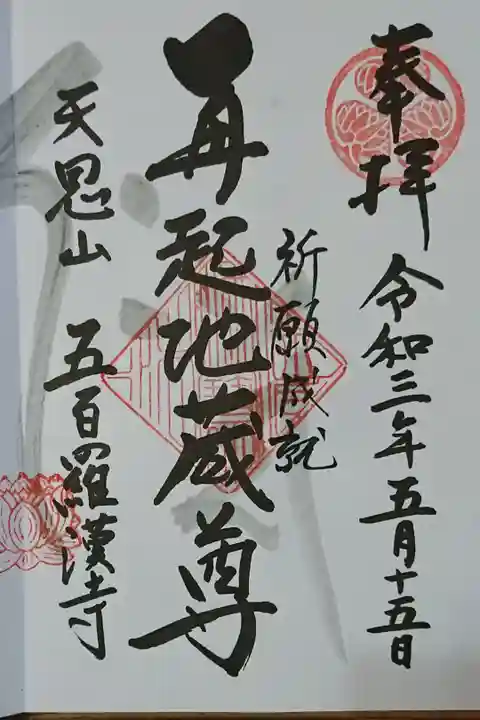 奉拝
令和三年五月十五日
祈願成就
再起地蔵尊
天恩山 五百羅漢寺